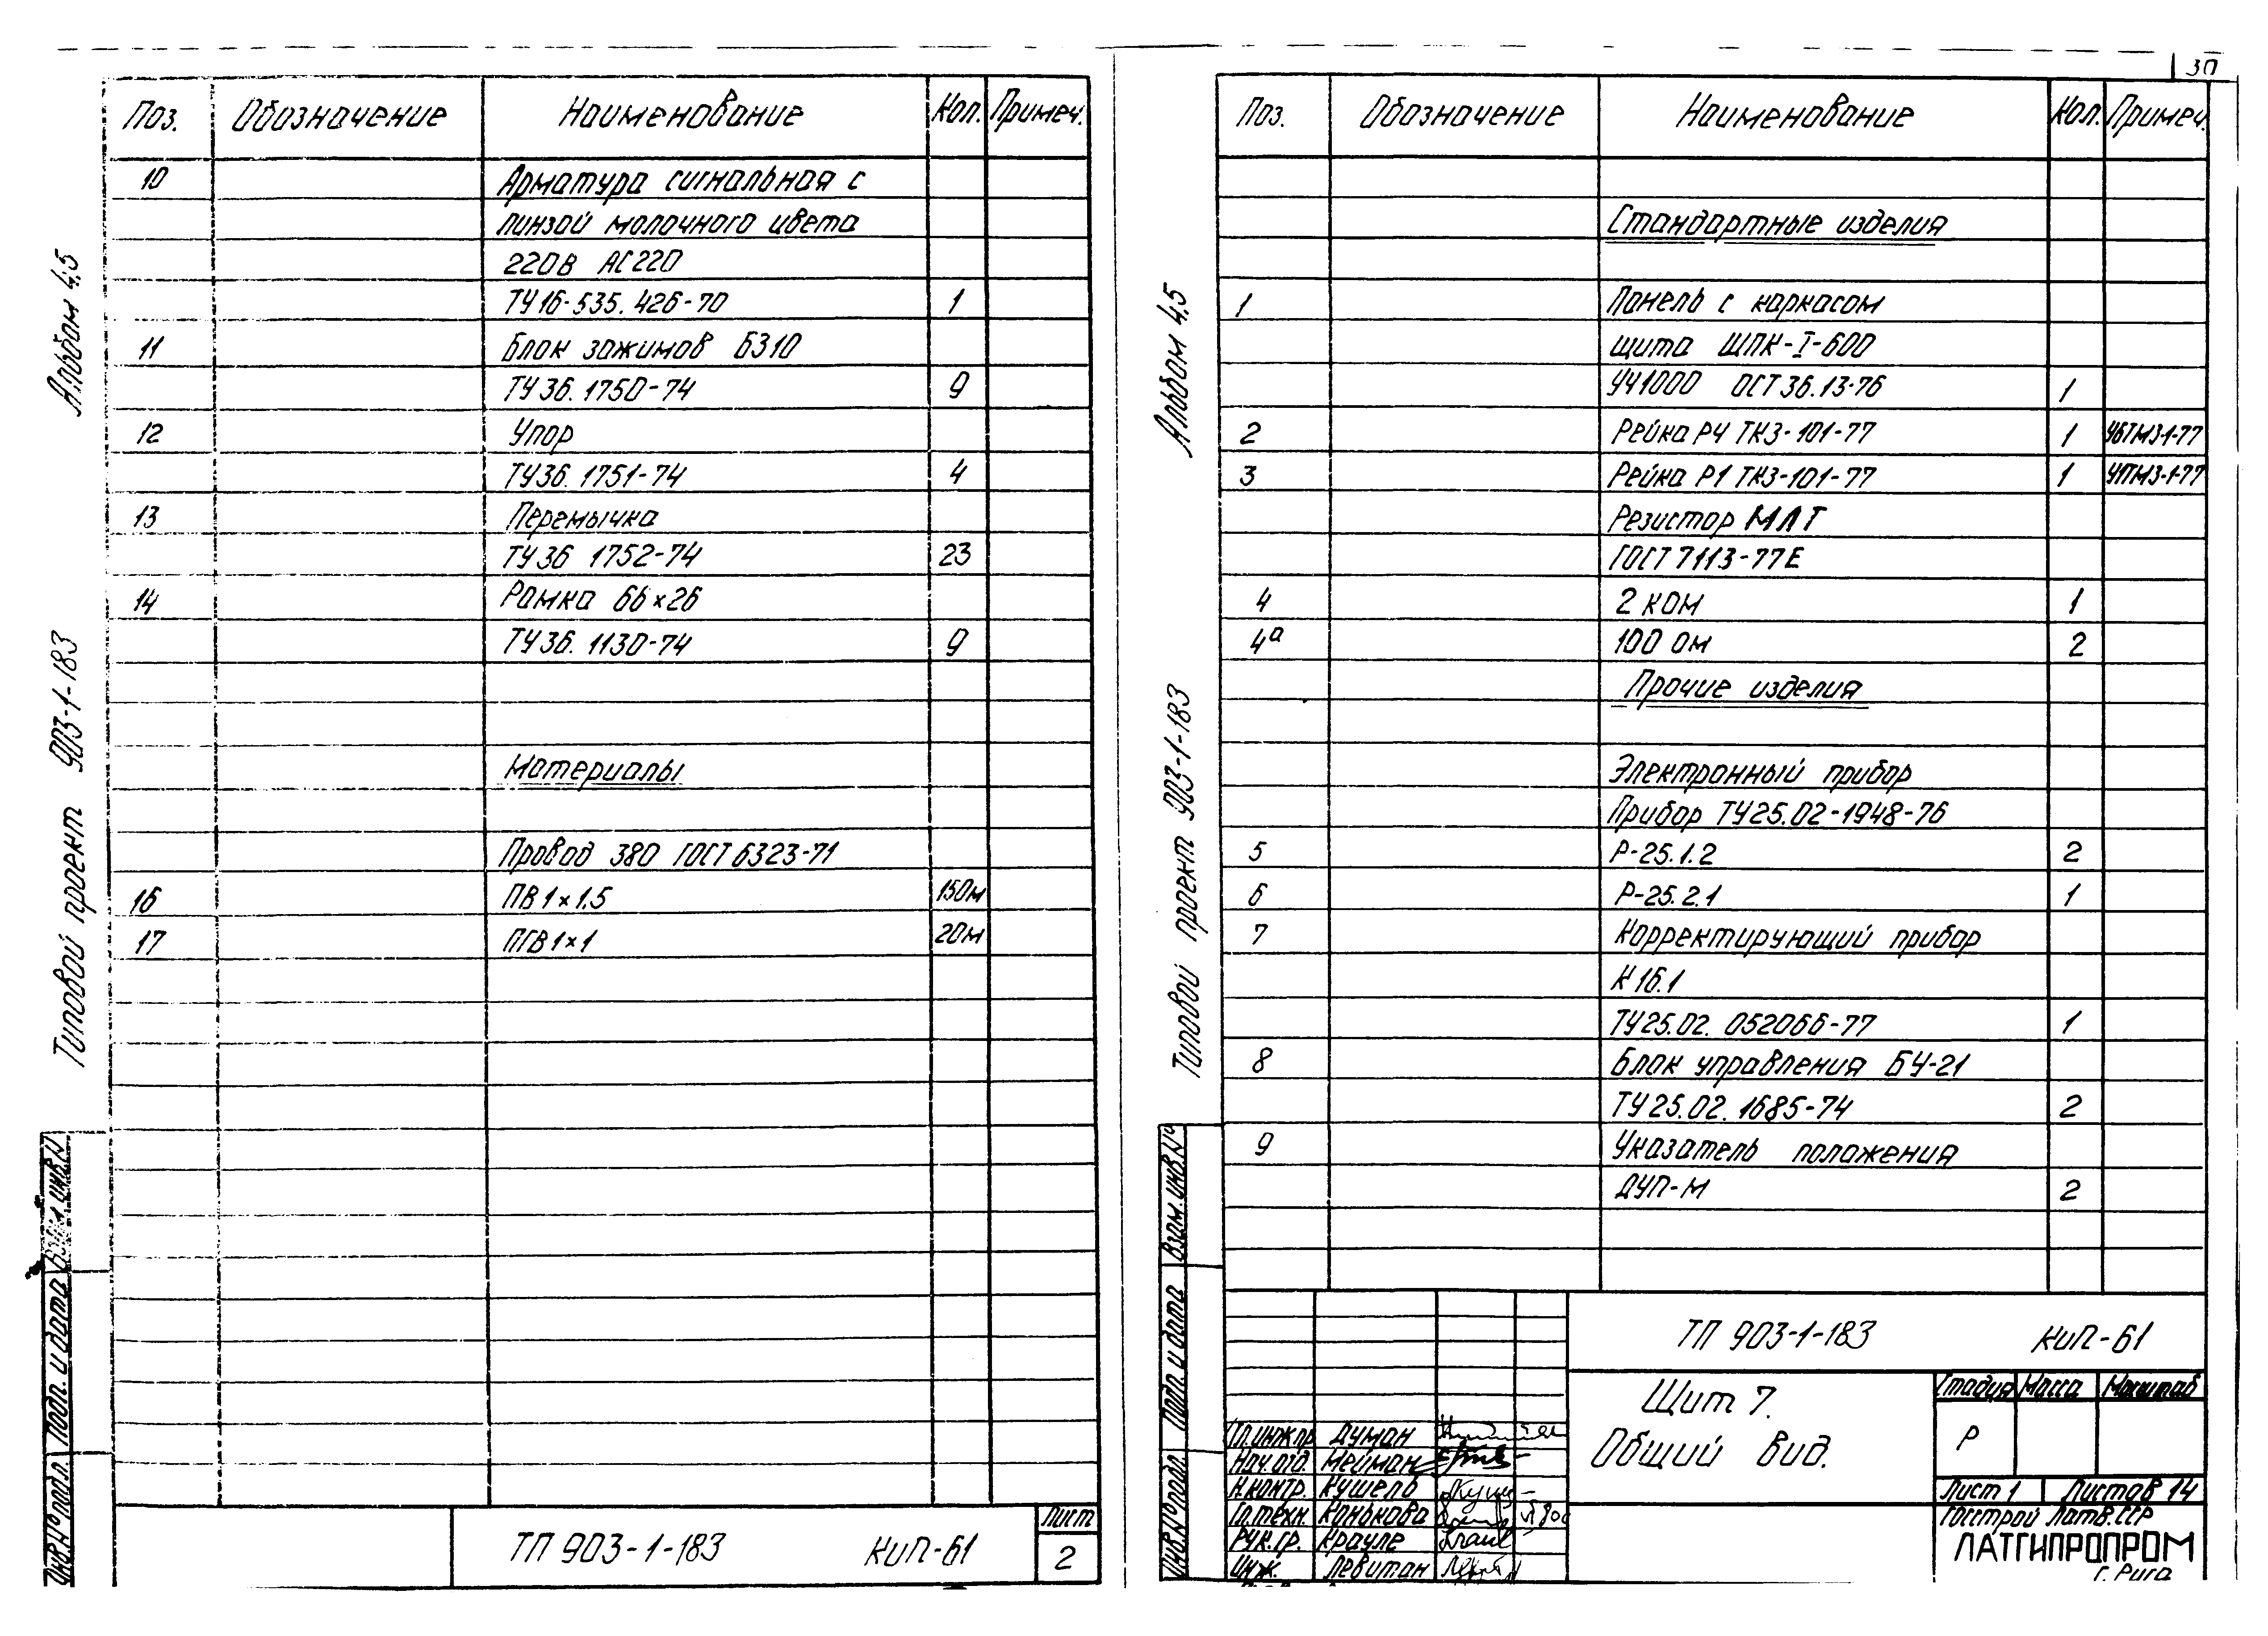 30
Альбом 4.5
Типовой проект 903-1-183
Взам. инв.№
Подп. и дата
Инв.№ подл.
Поз. Обозначение Наименование Кол. Примеч.
10 Арматура сигнальная с
линзой молочного цвета
220В АС220
ТУ16-535.426-70 1
11 Блок зажимов БЗ10
ТУ36.1750-74 9
12 Упор
ТУ36.1751-74 4
13 Перемычка
ТУ36 1752-74 23
14 Рамка 66×26
ТУ36.1130-74 9
Материалы
Провод 380 ГОСТ 6323-71
16 ПВ1×1.5 150м
17 ПГВ1×1 20м
ТП 903-1-183 КИП-61
Лист
2
Альбом 4.5
Типовой проект 903-1-183
Взам. инв.№
Подп. и дата
Инв.№ подл.
Поз. Обозначение Наименование Кол. Примеч.
Стандартные изделия
1 Панель с каркасом
щита ЩПК-I-600
УЧ1000 ОСТ36.13-76 1
2 Рейка РЧ ТК3-101-77 1 УБТМ3-1-77
3 Рейка Р1 ТК3-101-77 1 УПМ3-1-77
Резистор МЛТ
ГОСТ 7113-77Е
4 2 ком 1
4а 100 ом 2
Прочие изделия
Электронный прибор
Прибор ТУ25.02-1948-76
5 Р-25.1.2 2
6 Р-25.2.1 1
7 Корректирующий прибор
К16.1
ТУ25.02.052066-77 1
8 Блок управления БУ-21
ТУ25.02.1685-74 2
9 Указатель положения
ДУП-М 2
ТП 903-1-183 КИП-61
Щит 7.
Общий вид.
Стадия Масса Масштаб
Р
Лист 1 Листов 14
Госстрой Латв.ССР
ЛАТГИПРОПРОМ
г. Рига
Гл.инж.пр Думан
Нач.отд. Мейман
Н.контр. Кушель
Гл.техн. Конькова
Рук.гр. Крауле
Инж. Левитан